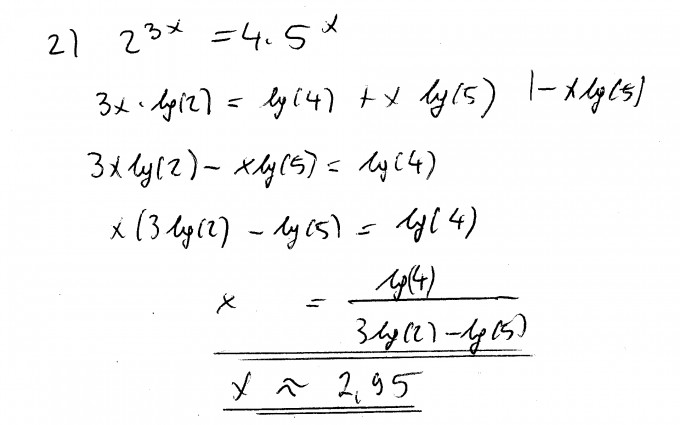 2) 2^{3x} = 4 · 5^x
3x · lg(2) = lg(4) + x lg(5) |- x lg(5)
3x lg(2) - x lg(5) = lg(4)
x (3 lg(2) - lg(5) = lg(4)
x = \frac{lg(4)}{3 lg(2) - lg(5)}
x ≈ 2,95